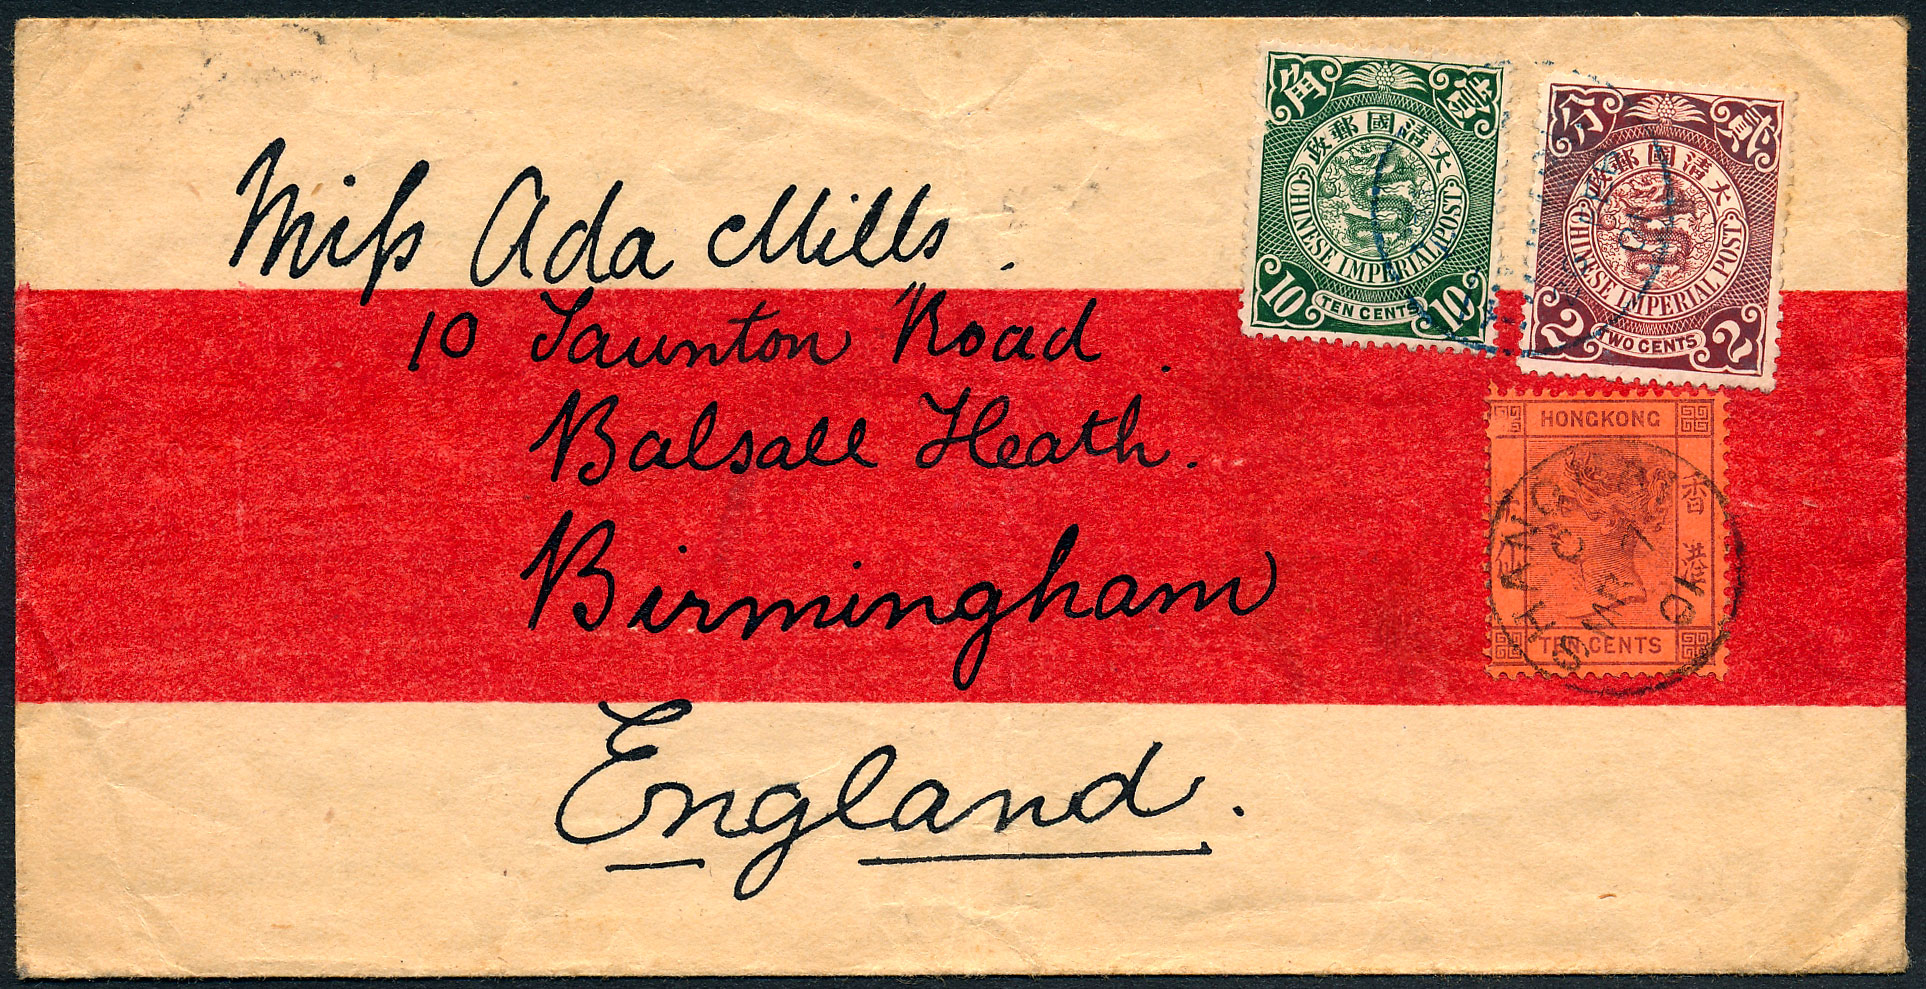 Miſs Ada Mills.
10 Taunton Road.
Balsall Heath.
Birmingham
England.
壹角
大清國郵政
CHINESE IMPERIAL POST
10 TEN CENTS 10
貳分
大清國郵政
CHINESE IMPERIAL POST
2 TWO CENTS 2
HONGKONG
香港
TEN CENTS
SHANG
C
MR 7
01